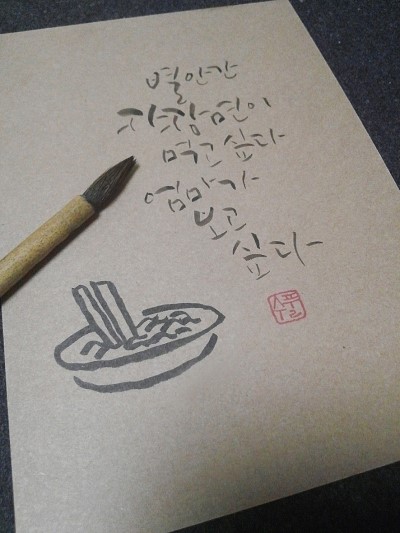 별안간
자장면이
먹고 싶다
엄마가
보고
싶다